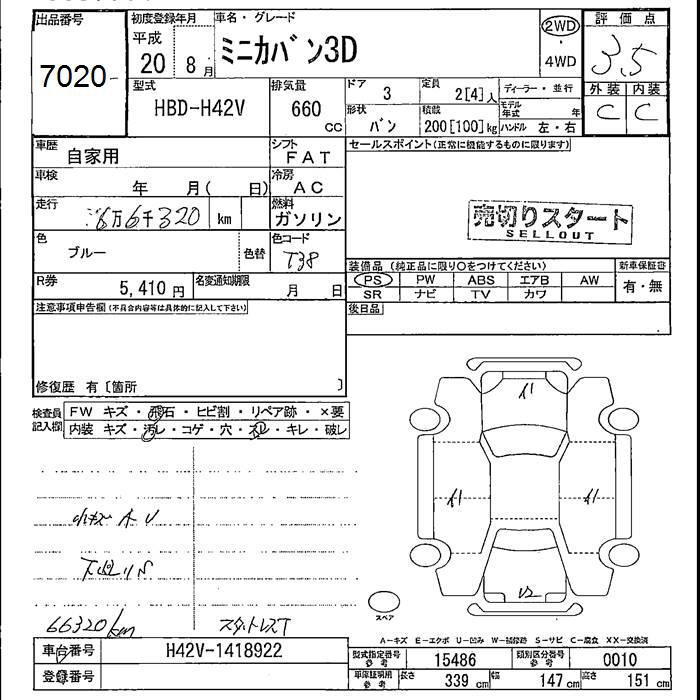 出品番号
7020
初度登録年月
平成
20 8月
車名・グレード
ミニカバン3D
2WD
・
4WD
評価点
3.5
外装 内装
C C
型式
HBD-H42V
排気量
660
CC
ドア 3
定員 2[4]人
形状 バン
積載 200[100]kg
ディーラー・並行
モデル年式 年
ハンドル 左・右
車歴 自家用
シフト FAT
車検 年 月( 日)
冷房 AC
走行 6万6千320 km
燃料 ガソリン
色 ブルー
色替
色コード T38
R券 5,410円
名変通知期限 月 日
セールスポイント(正常に機能するものに限ります)
売切りスタート
SELLOUT
装備品(純正品に限り○をつけてください)
新車保証書
PS PW ABS エアB AW
SR ナビ TV カワ
有・無
後日品
注意事項申告欄(不具合内容等は具体的に記入して下さい)
修復歴 有〔箇所 〕
検査員記入欄
FW キズ・飛石・ヒビ割・リペア跡・×要
内装 キズ・汚レ・コゲ・穴・スレ・キレ・破レ
A1
A1
A1
U2
小キズ A U
下廻りS
66320km
スタットレスT
スペア
A-キズ E-エクボ U-凹み W-補修跡 S-サビ C-腐食 XX-交換済
車台番号 H42V-1418922
登録番号
型式指定番号参考 15486
類別区分番号参考 0010
車庫証明用参考 長さ 339cm 幅 147cm 高さ 151cm